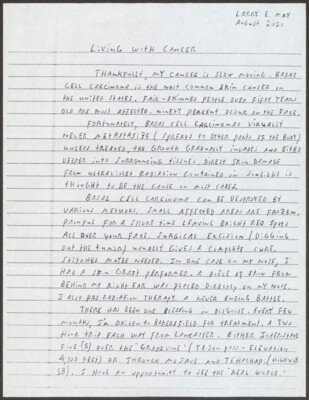 LARRY E. MAY
AUGUST 2021
LIVING WITH CANCER
THANKFULLY, MY CANCER IS SLOW MOVING. BASAL
CELL CARCINOMA IS THE MOST COMMON SKIN CANCER IN
THE UNITED STATES. FAIR-SKINNED PEOPLE OVER FIFTY YEARS
OLD ARE MOST AFFECTED. NINETY PERCENT OCCUR ON THE FACE.
FORTUNATELY, BASAL CELL CARCINOMAS VIRTUALLY
NEVER METASTASIZE (SPREADS TO OTHER PARTS OF THE BODY)
UNLESS TREATED, THE GROWTH GRADUALLY INVADES AND BITES
DEEPER INTO SURROUNDING TISSUES. DIRECT SKIN DAMAGE
FROM ULTRAVIOLET RADIATION CONTAINED IN SUNLIGHT IS
THOUGHT TO BE THE CAUSE IN MOST CASES.
BASAL CELL CARCINOMA CAN BE DESTROYED BY
VARIOUS METHODS. SMALL AFFECTED AREAS ARE FROZEN.
PAINFUL FOR A SHORT TIME LEAVING BRIGHT RED SPOTS
ALL OVER YOUR FACE. SURGICAL EXCISION (DIGGING
OUT THE TUMOR) USUALLY GIVES A COMPLETE CURE.
STITCHES MAYBE NEEDED. IN ONE CASE ON MY NOSE, I
HAD A SKIN GRAFT PERFORMED. A PIECE OF SKIN FROM
BEHIND MY RIGHT EAR WAS PLACED DIRECTLY ON MY NOSE.
I ALSO HAD RADIATION THERAPY. A NEVER ENDING BATTLE.
THERE HAS BEEN ONE BLESSING IN DISGUISE. EVERY FEW
MONTHS, I'M DRIVEN TO BAKERSFIELD FOR TREATMENT. A TWO
HOUR TRIP EACH WAY FROM LANCASTER. EITHER INTERSTATE
FIVE (5) OVER THE "GRAPEVINE" (TEJON PASS - ELEVATION
4,102 FEET) OR THROUGH MOJAVE AND TEHACHAPI (HIGHWAY
58). I HAVE AN OPPORTUNITY TO SEE THE "REAL WORLD."